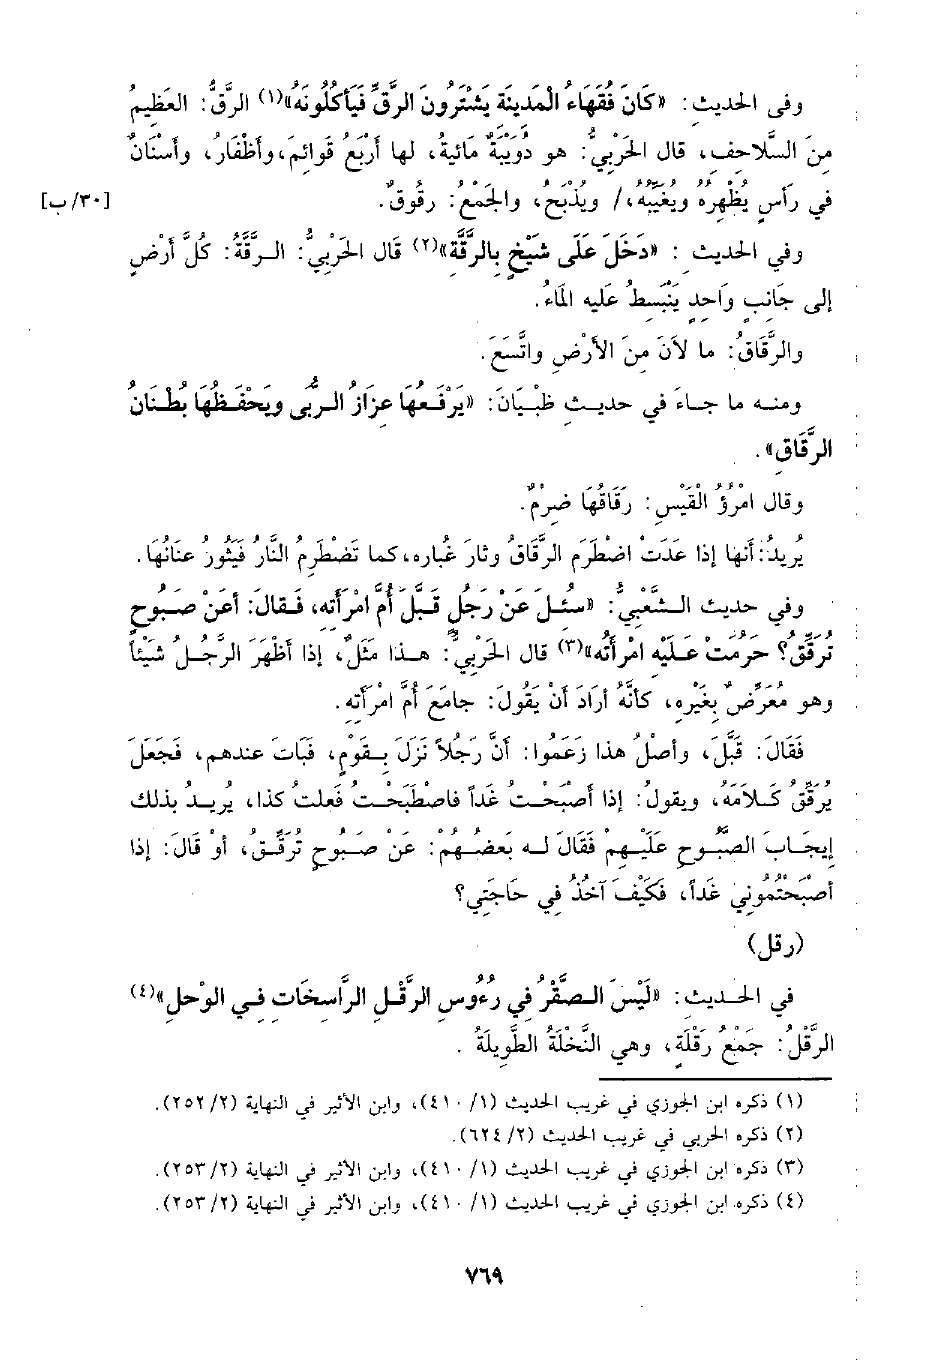 وفى الحديث: «كَانَ فُقَهَاءُ الْمَدينَة يَشْتَرُونَ الرَّقَّ فَيَأكُلُونَهُ»(١) الرَّقُّ: العَظِيمُ
مِنَ السَّلاَحِف، قال الحَرْبيُّ: هو دُوَيْبَةٌ مَائيةُ، لها أرْبَعُ قوائِم،وأظْفَارُ، وأسْنَانٌ
في رَأسٍ يُظْهِرُهُ ويُغَيِّبُهُ،/ ويُذْبَحُ، والجَمْعُ: رقُوقٌ.
[٣٠/ ب]
وفي الحديث : «دَخَلَ عَلَى شَيْخٍ بِالرَّقَّة»(٢) قَال الحَرْبِيُّ: الرَقَّةُ: كُلُّ أرْضٍ
إلى جَانِبِ وَاحِدٍ يَنْبَسِطُ عَليه المَاءُ.
والرَّقَاقُ: ما لاَنَ مِنَ الأرْضِ واتَّسَعَ.
ومنه ما جَاءَ في حديثِ ظَبْيَانَ: «يَرْفَعُهَا عِزَازُ الرُّبَى ويَحْفَظُهَا بُطْنَانُ
الرَّقَاقِ» .
وقَال امْرُؤُ الْقَيْسِ: رَقَاقُهَا ضِرْمٌ.
يُرِيدُ:أنها إذَا عَدَتْ اضْطَرَم الرَّقاقُ وثارَ غُباره،كما تَضْطَرِمُ النَّارُ فَيَثُورُ عنَانُهَا.
وفي حديث الشَّعْبيُّ: «سُئلَ عَنْ رَجُلٍ قَبَّلَ أُمَّ امْرَأته، فَقالَ: أعَنْ صَبُوحٍ
تُرَقِّقُ؟ حَرُمَتْ عَلَيْه امْرأتُه»(٣) قال الحَرْبيُّ: هذا مَثَلٌ، إذا أظْهَرَ الرجُلُ شَيْئاً
وهو مُعَرِّضٌ بِغَيْرِه، كأنَّهُ أرَادَ أنْ يَقُولَ: جامَعَ أُمَّ امْرأتِهِ.
فَقَالَ: قَبَّلَ، وأصْلُ هذا زَعَمُوا: أنَّ رَجُلاً نَزَلَ بِقَوْمٍ، فَبَاتَ عندهم، فَجَعَلَ
يُرَقِّقُ كَلاَمَهُ، ويقولُ: إذا أصبَحْتُ غَداً فاصْطَبَحْتُ فَعلت كذا، يُرِيدُ بذلك
إيجَابَ الصَّبُوحِ عَلَيْهِمْ فَقَالَ له بَعضُهُمْ: عَنْ صَبُوحٍ تُرَقِّقُ، أوْ قَالَ: إذا
أصْبَحْتُمُوني غَداً، فَكَيْفَ آخُذُ فِي حَاجَتِي؟
(رقل)
في الحديث: «لَيْسَ الصَّقْرُ في رءُوسِ الرَقْلِ الرَّاسخَاتِ في الوحْلِ»(٤)
الرَّقْلُ: جَمْعُ رَقْلَةٍ، وهي النَّخْلَةُ الطَّوِيلَةُ .
(١) ذكره ابن الجوزي في غريب الحديث (٤١٠/١)، وابن الأثير في النهاية (٢٥٢/٢).
(٢) ذكره الحربي في غريب الحديث (٦٢٤/٢).
(٣) ذكره ابن الجوزي في غريب الحديث (٤١٠/١)، وابن الأثير في النهاية (٢٥٣/٢).
(٤) ذكره ابن الجوزي في غريب الحديث (٤١٠/١)، وابن الأثير في النهاية (٢٥٣/٢).
٧٦٩